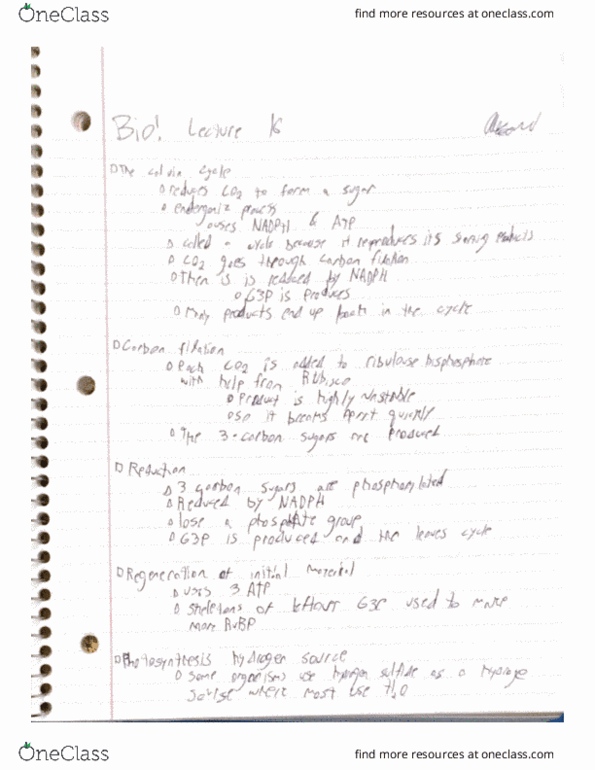 OneClass
find more resources at oneclass.com
Bio! Lecture 16
The calvin cycle
reduces CO2 to form a sugar
endergonic process
uses NADPH & ATP
called a cycle because it reproduces its products
CO2 goes through carbon fixation
Then is is reduced by NADPH
G3P is produces
Many products end up back in the cycle
Carbon fixation
Each CO2 is added to ribulose bisphosphate
with help from Rubisco
Product is highly unstable
so it breaks apart quickly
The 3-carbon sugars are produced
Reduction
3 carbon sugars are phosphorylated
Reduced by NADPH
lose a phosphate group
G3P is produced and the leaves cycle
Regeneration of initial material
uses 3 ATP
skeletons of leftover G3P used to make
more RuBP
Photosynthesis hydrogen source
some organisms use hydrogen sulfide as a hydroge
where most use H2O
OneClass
find more resources at oneclass.com